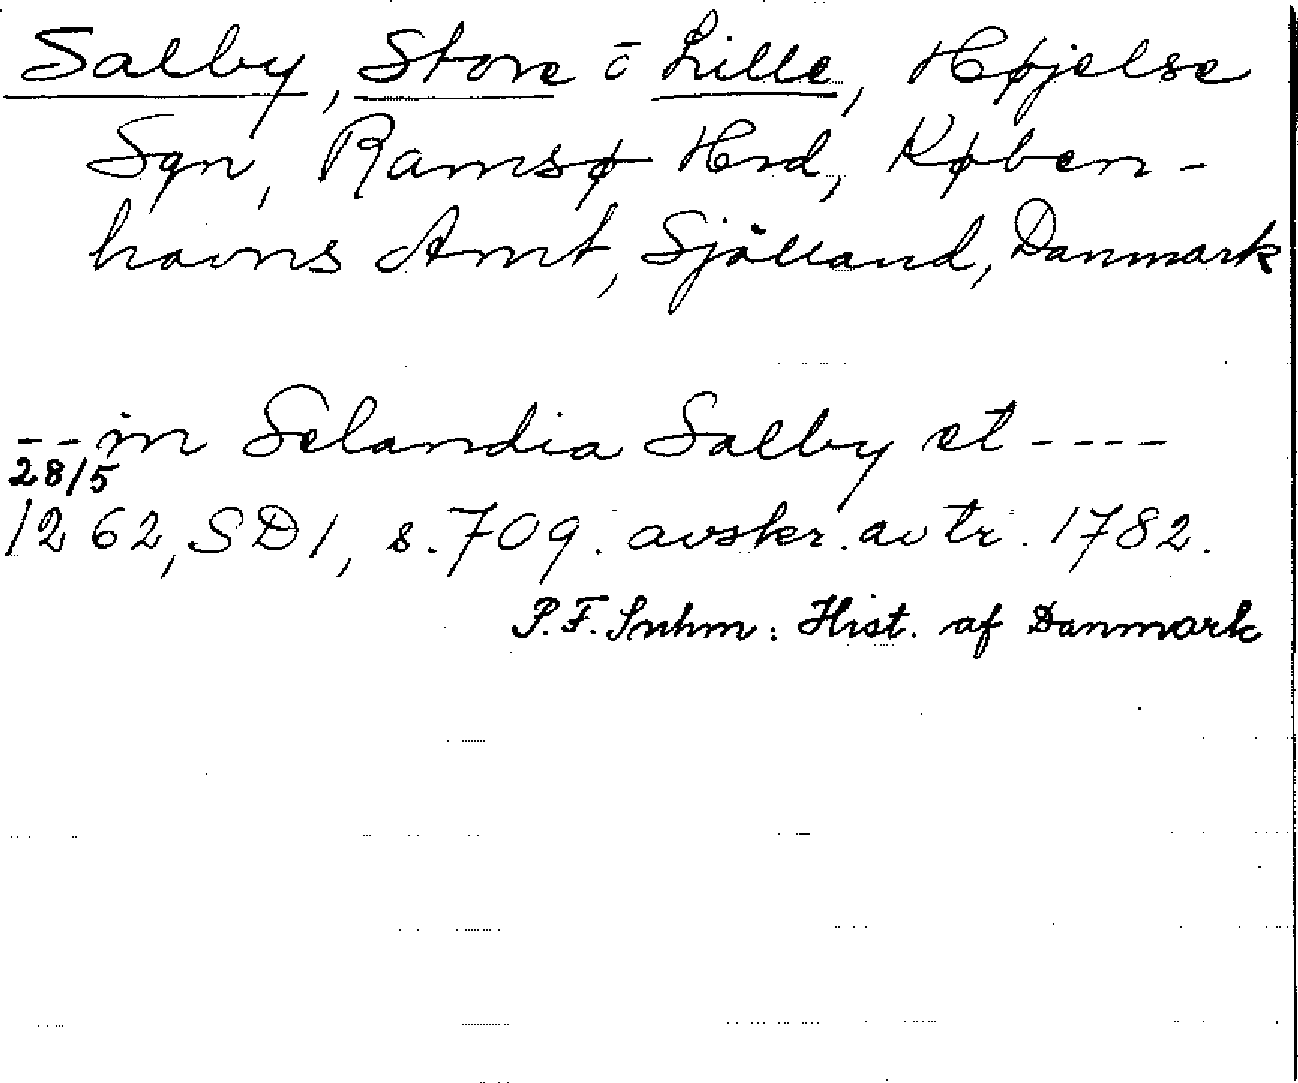 Salby, Store o Lille, Højelse
Sgn, Ramsø Hrd, Køben-
havns Amt, Sjölland, Danmark
--in Selandia Salby et ----
28/5
1262, SD1, s. 709. avskr. av tr. 1782.
P.F. Suhm: Hist. af Danmark